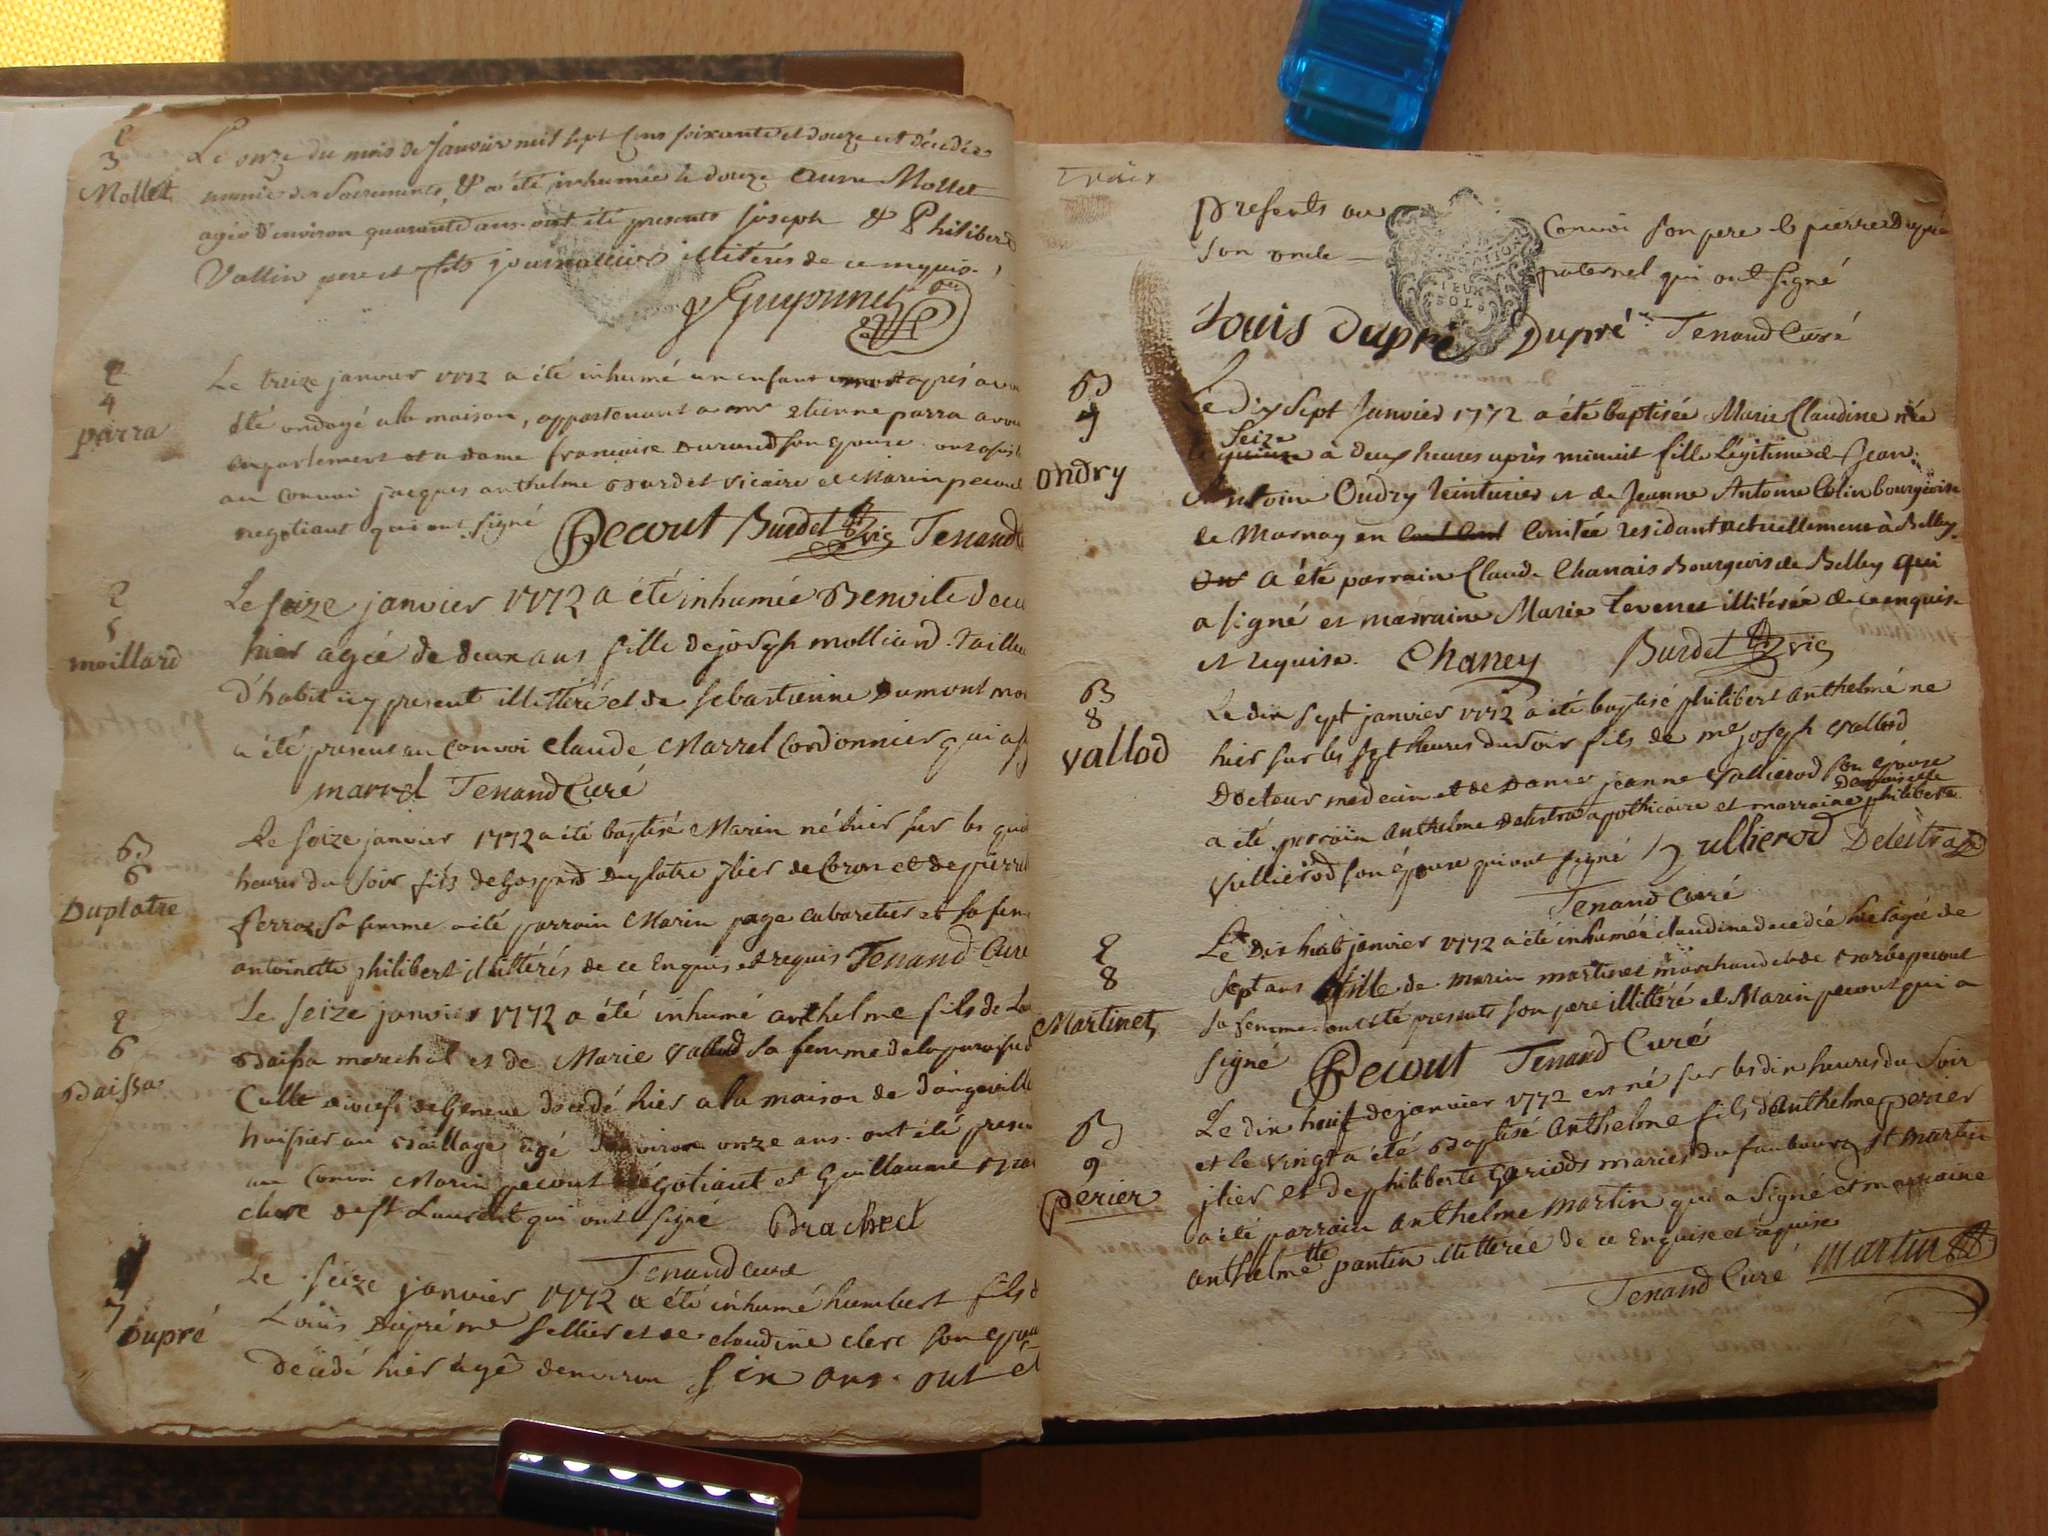 3
Mollet
Le onze du mois de Janvier mil sept Cens soixante et douze est décédée
munie des Sacrements, & a été inhumée le douze Anne Mollet
agée d'environ quarante ans. ont été presents Joseph & Philiberd
Vallin pere et fils journaliers illitérés de ce enquis.
Guyonnet
4
parra
Le treize janvier 1772 a été inhumé un enfant mort après avoir
été ondoyé a la maison, appartenant a mr etienne parra avou
en parlement et a dame francoise Durand son epouse. ont assist
au convoi jacques anthelme Burdet vicaire et Marin pecout
negotiant qui ont signé Pecout Burdet vic Tenand
5
moillard
Le seize janvier 1772 a été inhumée Benoite
hier agée de deux ans fille de joseph molliard tailleu
d'habit icy present illittéré et de sebastienne Dumont
a été present au convoi claude Marrel Cordonnier qui a
marrel Tenand Curé
B
6
Duplatre
Le seize janvier 1772 a été baptisé Marin né hier sur les
heures du soir fils de Gaspard Duplatre jtier de Coron et de pierret
ferraz sa femme a été parrain Marin page cabaretier et sa fem
antoinette philibert illittérés de ce Enquis et requis Tenand Curé
6
Baissa
Le seize janvier 1772 a été inhumé anthelme fils de
Baissa marechal et de Marie Vallod sa femme de la paroisse d
Culle diocese de Geneve decedé hier a la maison de
huissier au Baillage agé d'environ onze ans. ont été presen
au convoi Marin pecout négotiant et Guillaume
clerc de st Laurent qui ont signé Brachet
Tenand curé
7
Dupré
Le seize janvier 1772 a été inhumé humbert fils d
Loüis Dupré me sellier et de claudine clerc son epou
décédé hier agé denviron six ans. ont ét
Trois
presents au Convoi son pere & pierre Dupré
son oncle paternel qui ont signé
DEUX SOLS
Louis Dupré Dupré Tenand Curé
B
7
Oudry
Le Dix Sept Janvier 1772 a été baptisée Marie Claudine née
seize
le quinze à deux heures après minuit fille Légitime de Jean
Antoine Oudry teinturier et de Jeanne Antoine Colin bourgeoise
de Marnay en Comtée residant actuellement à Belley.
a été parrain Claude Chanais Bourgeois de Belley qui
a signé et marraine Marie Tevenet illitérée de ce enquise
et requise. Chaney Burdet vic
B
8
vallod
Le dix sept janvier 1772 a été baptisé philibert anthelme né
hier sur les sept heures du soir fils de mre joseph vallod
Docteur medecin et de Dame jeanne Vullierod son epouse
Demoiselle
a été parrain anthelme Delestra apothicaire et marraine philiberte
Vullierod son épouse qui ont signé Vullierod Delestra
Tenand Curé
8
Martinet
Le Dix huit janvier 1772 a été inhumée claudine decedée hier agée de
sept ans fille de marin martinet marchand et de Barbe pecout
sa femme. ont été presents son pere illittéré et Marin pecout qui a
signé Pecout Tenand Curé
B
9
perier
Le dix huit de janvier 1772 est né sur les dix heures du soir
et le vingt a été Baptisé anthelme fils d'anthelme perier
jtier et de philiberte Gariods mariés du faubourg st martin
a été parrain anthelme martin qui a signé et marraine
anthelmette pantin illitterée de ce Enquise et requise
Tenand Curé Martin